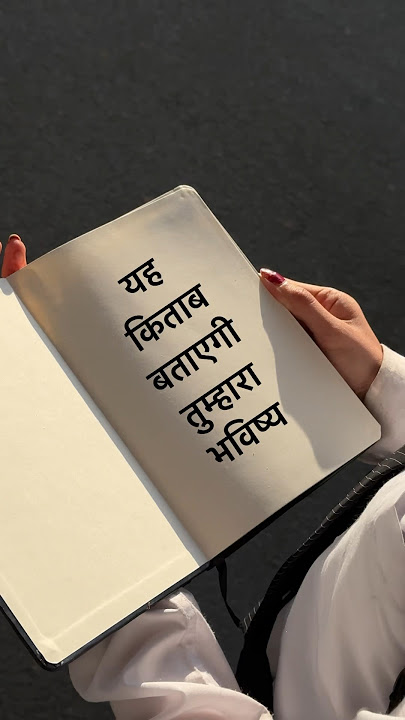 यह
किताब
बताएगी
तुम्हारा
भविष्य